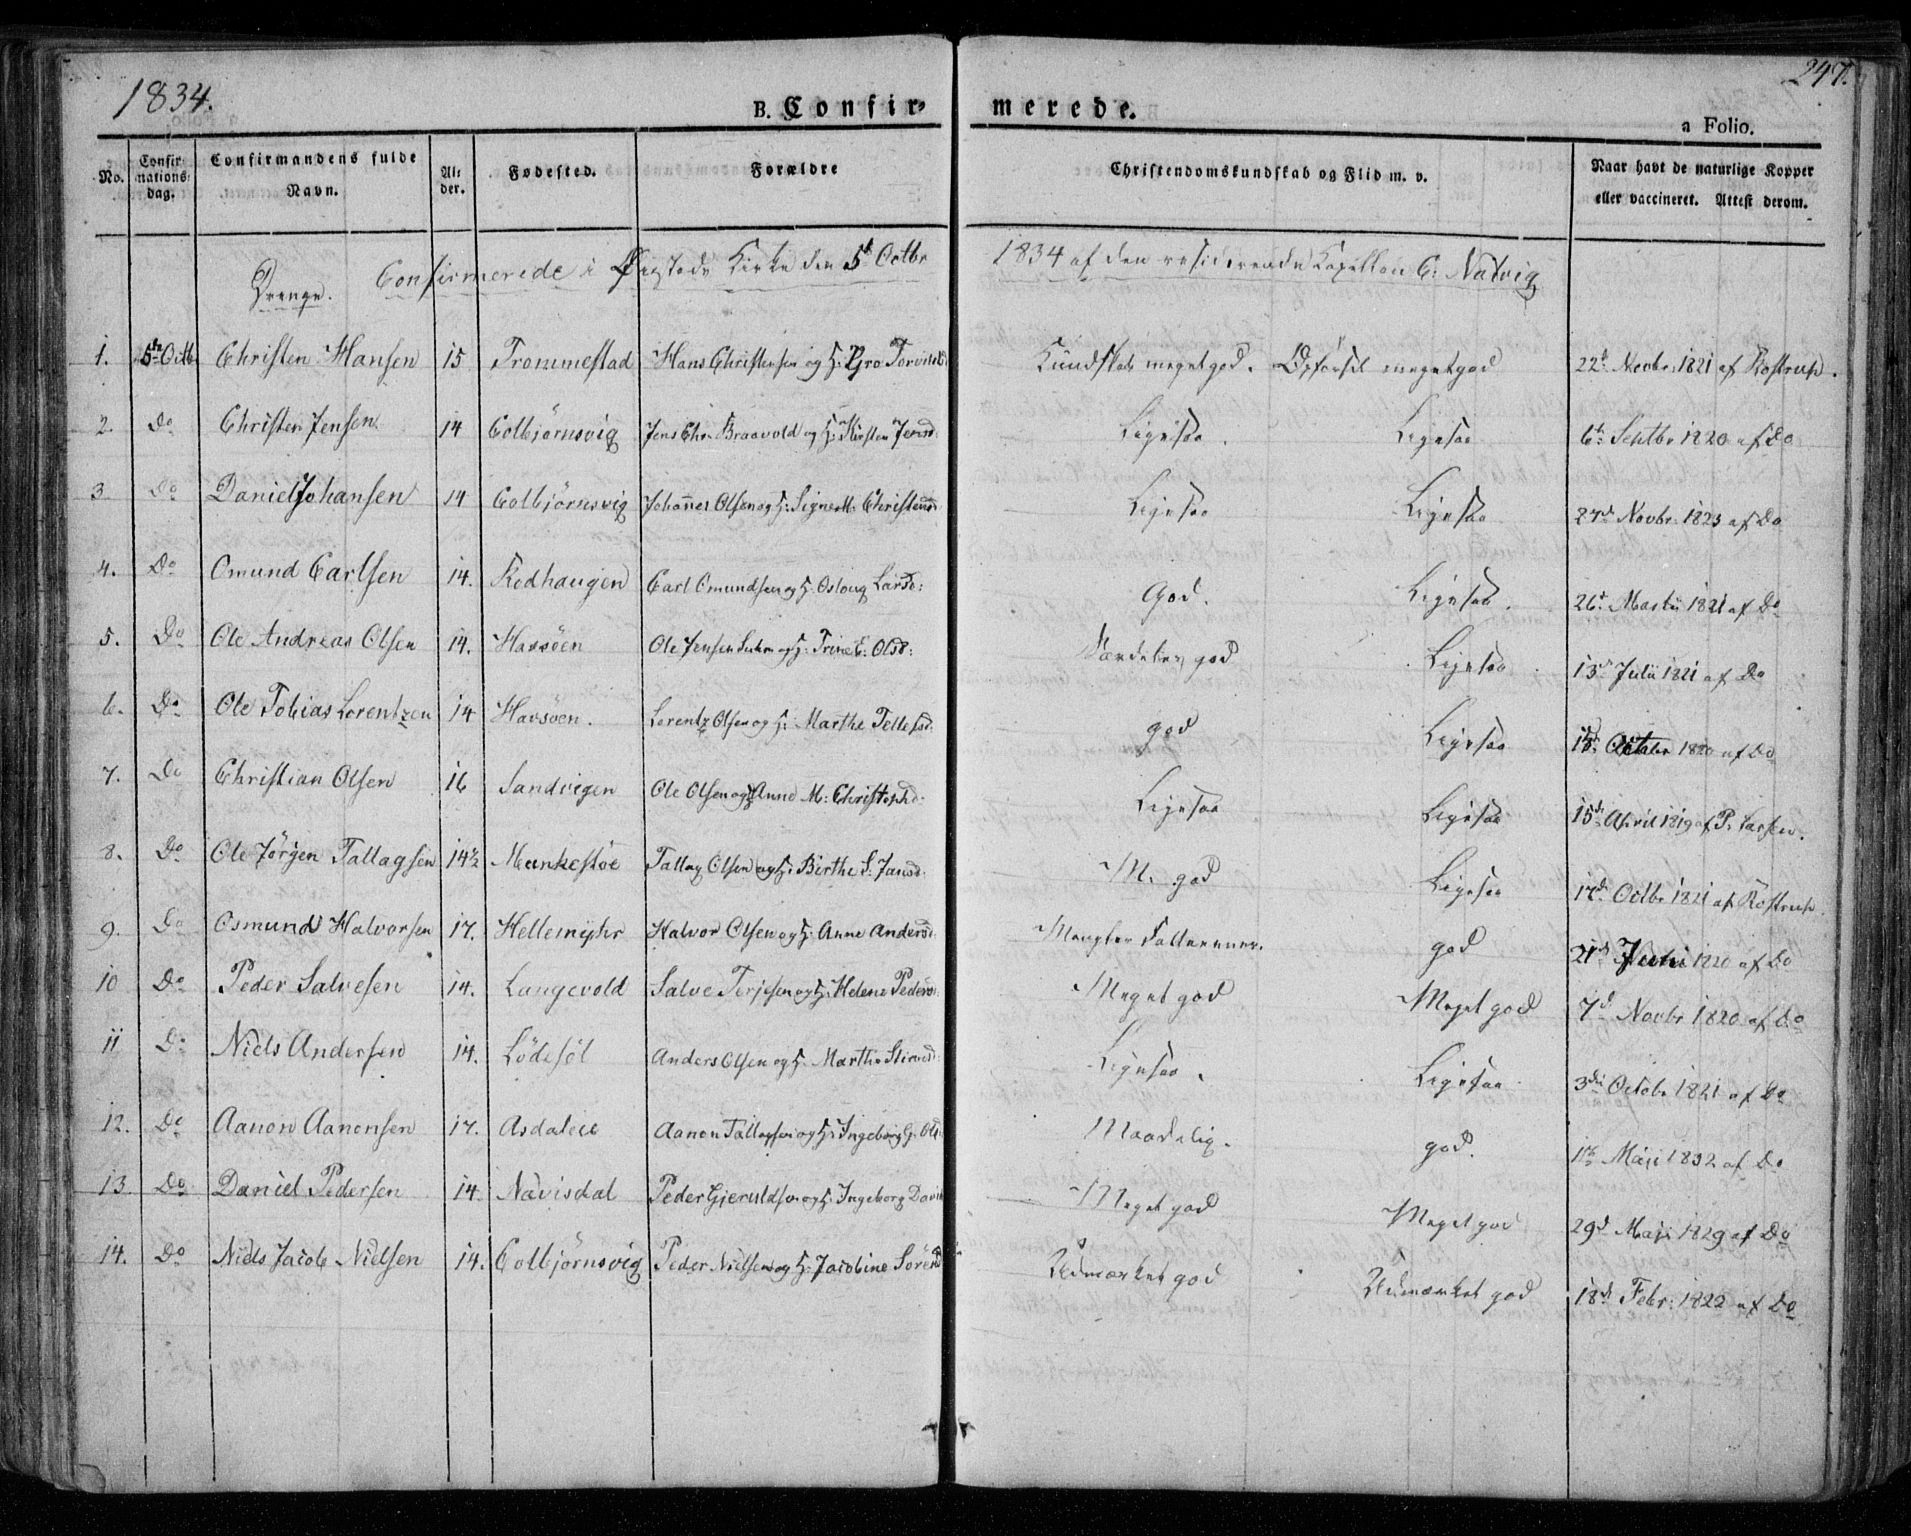 1834.
247.
B. Confir-merede.
a Folio.
No. Confirmations dag. Confirmandens fulde Navn. Alder. Fødested. Forældre Christendomskundskab og Flid m. v. Naar havt de naturlige Kopper eller vaccineret. Attest derom.
Confirmerede i Øiestads Kirke den 5t Octbr 1834 af den residerende Kapellan C: Natvig
Drenge.
1. 5te Octb Christen Hansen 15 Trommestad Hans Christensen og H: Gro Torvilds Kundskab meget god. Opførsel meget god 22d Novbr. 1821 af Rostrup.
2. Do Christen Jensen 14 Colbjørnsvig Jens Chr. Braavold og H: Kirsten Jensd: Ligesaa. Ligesaa 6te Septbr 1820 af Do
3 Do Daniel Johansen 14 Colbjørnsvig Johannes Olsen og H: Signe M: Christens: Ligesaa Ligesaa 27d Novbr. 1823 af Do
4. Do Omund Carlsen 14. Rødhaugen Carl Omundsen og H. Osloug Larsd: God. Ligesaa. 26t Martii 1821 af Do
5. Do Ole Andreas Olsen 14. Havsöen Ole Jensen og H: Trine E: Olsd: Særdeles god Ligesaa 13de Julii 1821 af Do
6. Do Ole Tobias Lorentzen 14 Havsöen. Lorentz Olsen og H: Marthe Tellefsd. god Ligesaa Octobr 1820 af Do
7. Do Christian Olsen 16 Sandvigen Ole Olsen og H Anne M: Christophd: Ligesaa Ligesaa 15de April 1819 af P. Larsen.
8. Do Ole Jørgen Tallagsen 14½ Munkestöe Tallag Olsen og H: Birthe S: Jansd. M. god Ligesaa 17de Octbr 1821 af Rostrup.
9. Do Osmund Halvorsen 17. Hellemyhr Halvor Olsen og H: Anne Andersd: god 21de 1820 af Do
10 Do Peder Salvesen 14. Langevold Salve Terjesen og H: Helene Pedersd: Meget god Meget god 7d Novbr 1820 af Do
11 Do Niels Andersen 14. Lödesöl Anders Olsen og H. Marthe Meget god Ligesaa. Ligesaa 3die Octobr 1821 af Do
12. Do Aanon Aanonsen 17. Asdalen Aanon Tallagsen og H: Ingeborg G. Ols Maadelig. god. Maji 1832 af Do
13. Do Daniel Pedersen 14. Navisdal Peder Gjeruldsen og H. Ingeborg Davids Meget god Meget god 29d Maji 1829 af Do
14. Do Niels Jacob Nielsen 14. Colbjørnsvig Peder Nielsen og H. Jacobine Sörensd Udmærket god Udmærket god 18d Febr: 1822 af Do